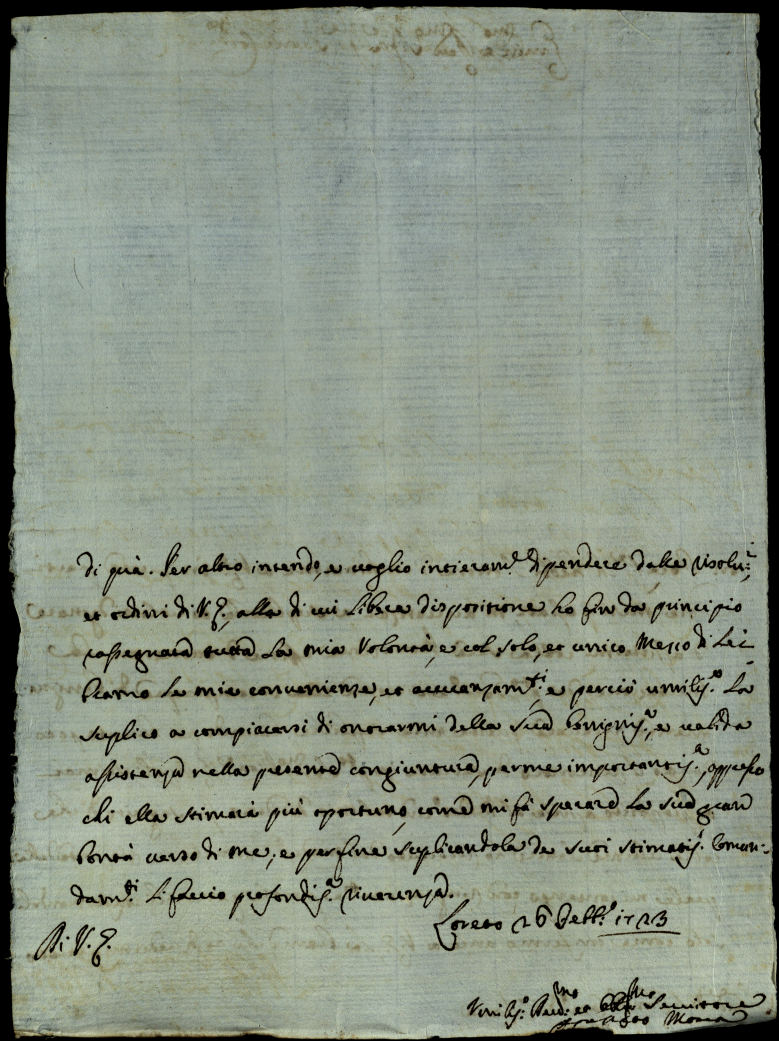 di quà. Per altro intendo, e voglio intieram.e dipendere dalle risolu.ni
et ordini di V. E. alla di cui libera dispositione ho fin da principio
rassegnata tutta la mia Volontà, e col solo, et unico Mezzo di Lei
bramo le mie convenienze, et avvanzam.ti, e perciò umiliss.o La
suplico a compiacersi di onorarmi della sua benigniss.a, e valida
assistenza nella presente congiuntura, per me importantiss.a, appresso
chi ella stimarà più oportuno, come mi fà sperare la sua gran
bontà verso di me, e per fine suplicandola de suoi stimatiss.i Coman-
dam.ti Li faccio profondiss.a riverenza.
Di V. E.
Loreto 26 1723
Umiliss.o Dev.mo et Obb.mo Servitore